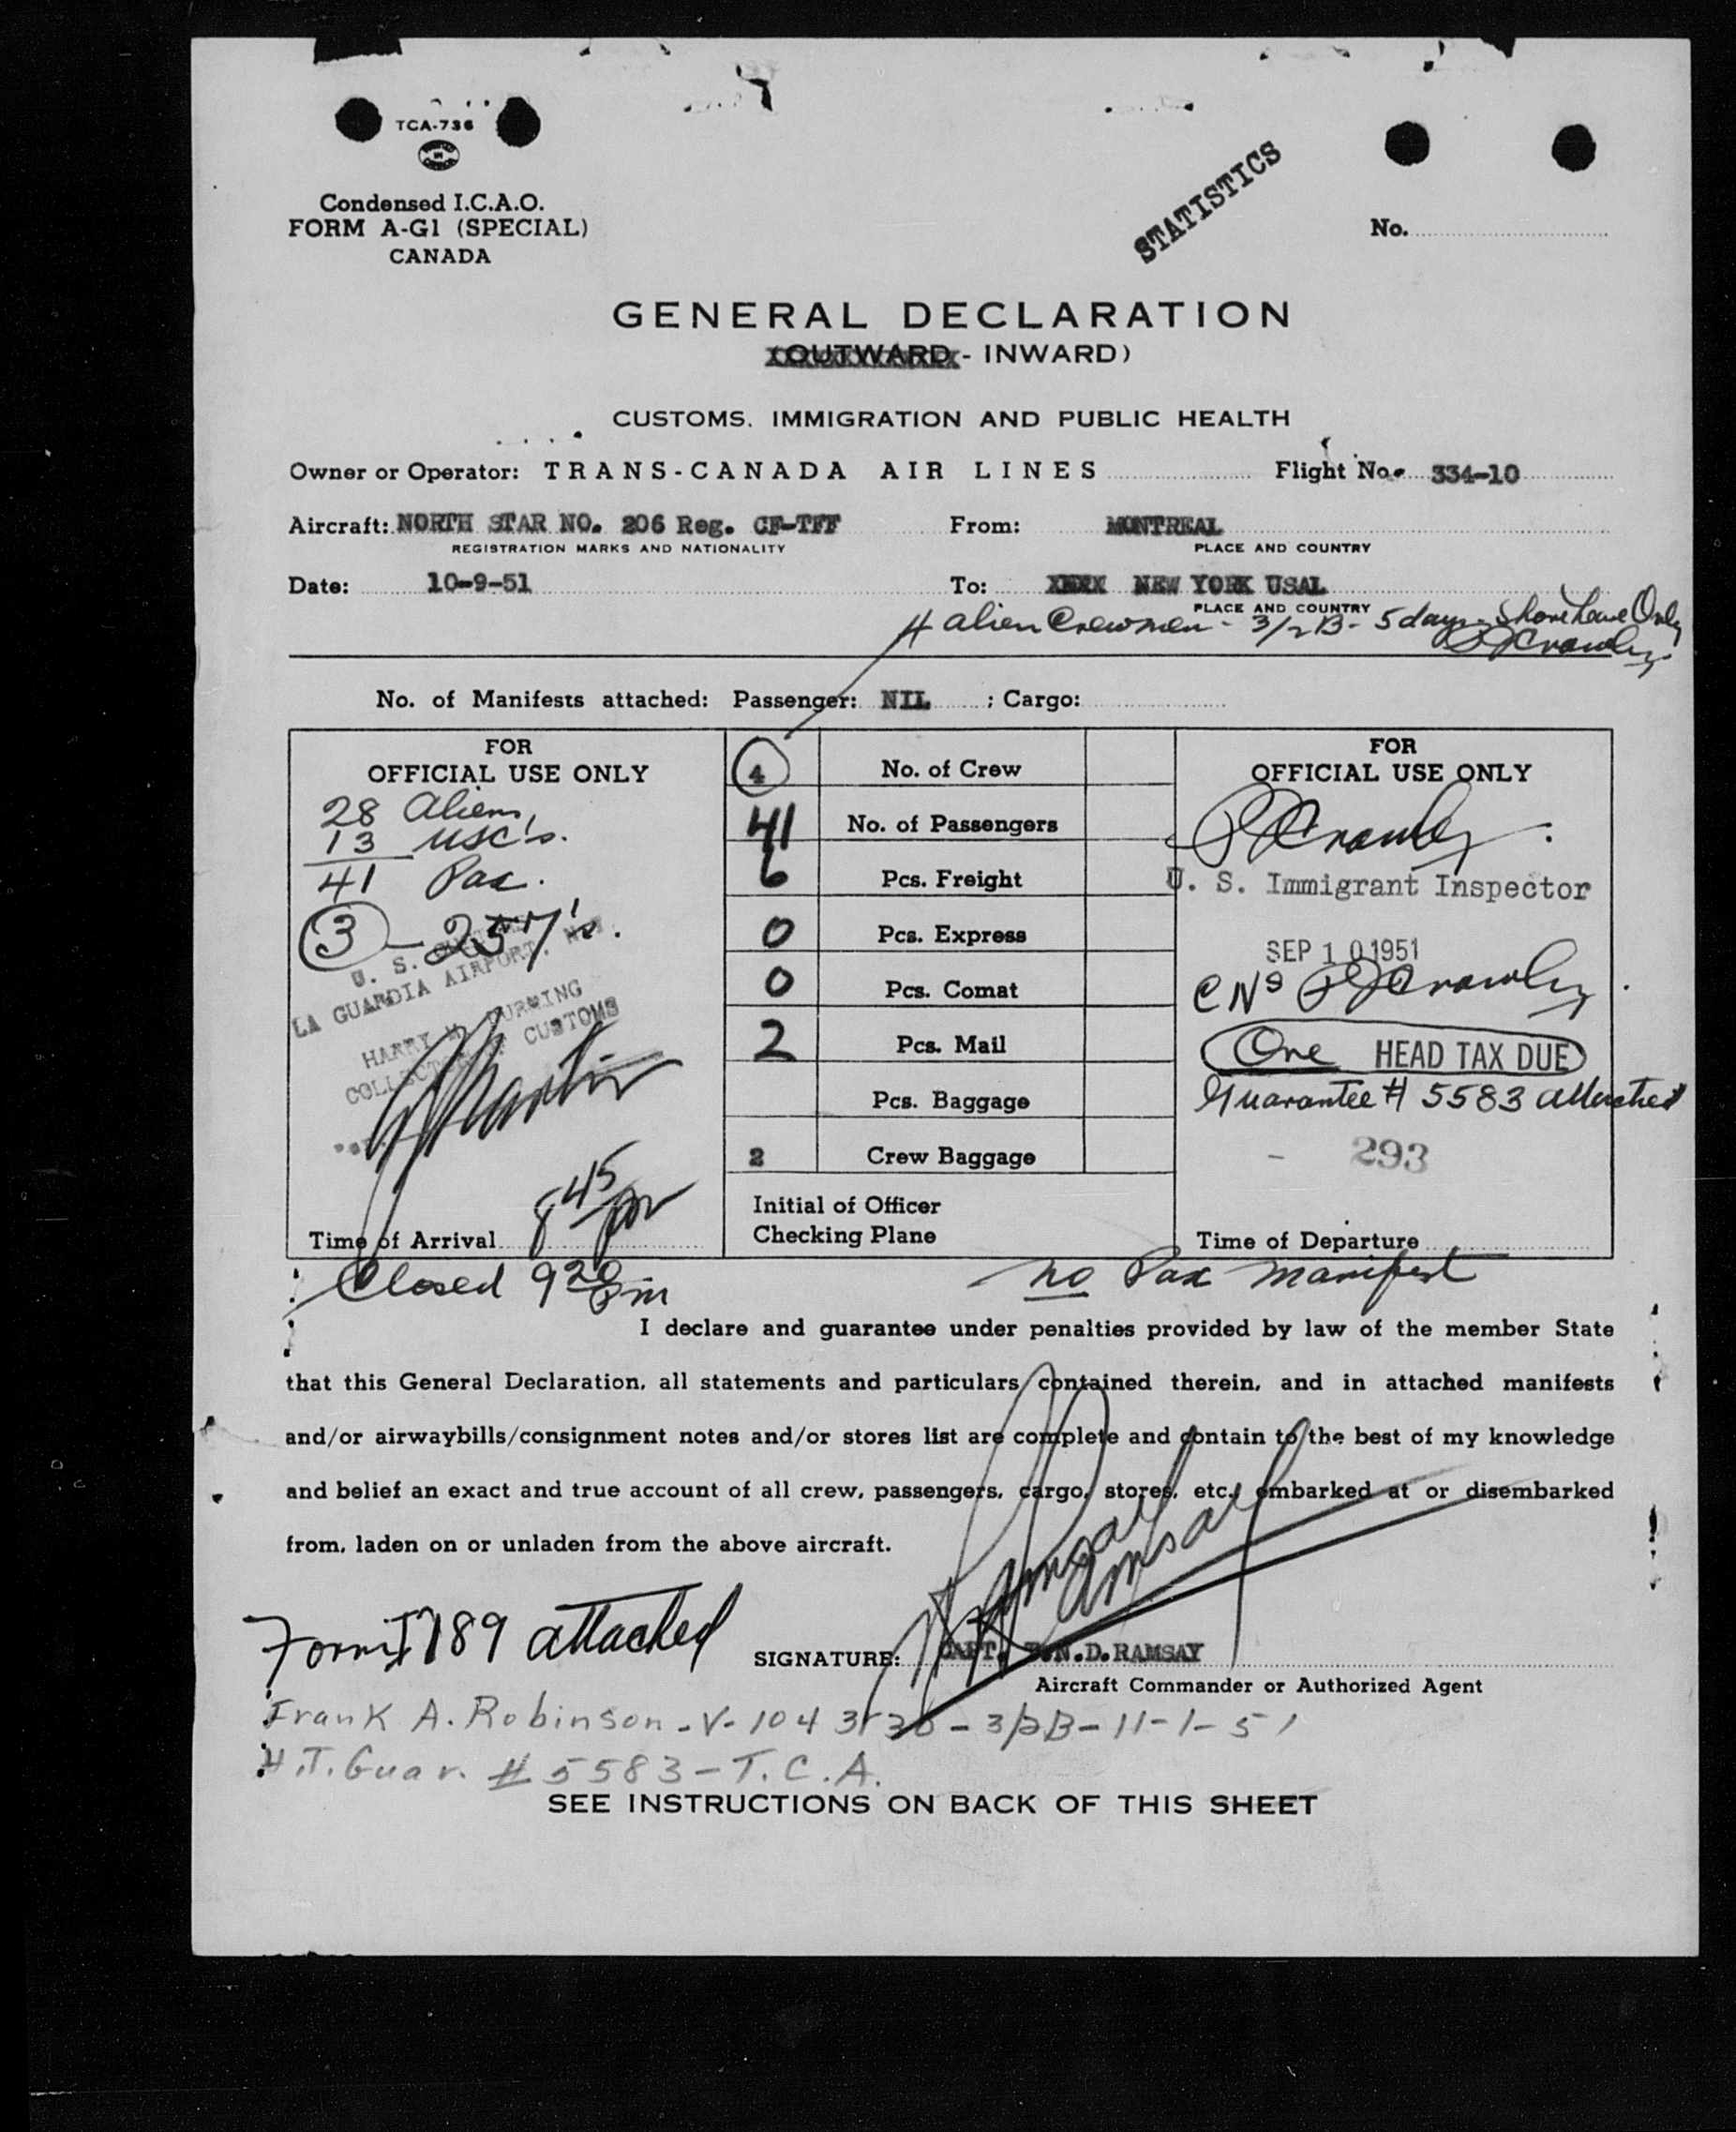 TCA-736
Condensed I.C.A.O.
FORM A-G1 (SPECIAL)
CANADA
STATISTICS
No.
GENERAL DECLARATION
(OUTWARD - INWARD)
CUSTOMS, IMMIGRATION AND PUBLIC HEALTH
Owner or Operator: TRANS-CANADA AIR LINES Flight No. 334-10
Aircraft: NORTH STAR NO. 206 Reg. CF-TFF From: MONTREAL
REGISTRATION MARKS AND NATIONALITY PLACE AND COUNTRY
Date: 10-9-51 To: XXXX NEW YORK USAL
PLACE AND COUNTRY
4 alien Crewmen - 3/2 B - 5 days Shore Leave Only
No. of Manifests attached: Passenger: NIL ; Cargo:
FOR
OFFICIAL USE ONLY
28 Aliens
13 USC's.
41 Pax.
3 - 257's.
U. S.
LA GUARDIA AIRPORT, N.Y.
HARRY M. DURNING
COLLECTOR OF CUSTOMS
Martin
Time of Arrival 8 45 pm
4 No. of Crew
41 No. of Passengers
6 Pcs. Freight
0 Pcs. Express
0 Pcs. Comat
2 Pcs. Mail
Pcs. Baggage
2 Crew Baggage
Initial of Officer
Checking Plane
FOR
OFFICIAL USE ONLY
Crowley
U. S. Immigrant Inspector
SEP 10 1951
Crowley
One HEAD TAX DUE
Guarantee # 5583 attached
- 293
Time of Departure
Closed 9 20 pm
no Pax manifest
I declare and guarantee under penalties provided by law of the member State
that this General Declaration, all statements and particulars contained therein, and in attached manifests
and/or airwaybills/consignment notes and/or stores list are complete and contain to the best of my knowledge
and belief an exact and true account of all crew, passengers, cargo, stores, etc., embarked at or disembarked
from, laden on or unladen from the above aircraft.
Form I 189 attached
SIGNATURE: CAPT. N.D. RAMSAY
Aircraft Commander or Authorized Agent
Frank A. Robinson - V- - 3/2B - 11-1-51
H.T. Guar. # 5583 - T.C.A.
SEE INSTRUCTIONS ON BACK OF THIS SHEET